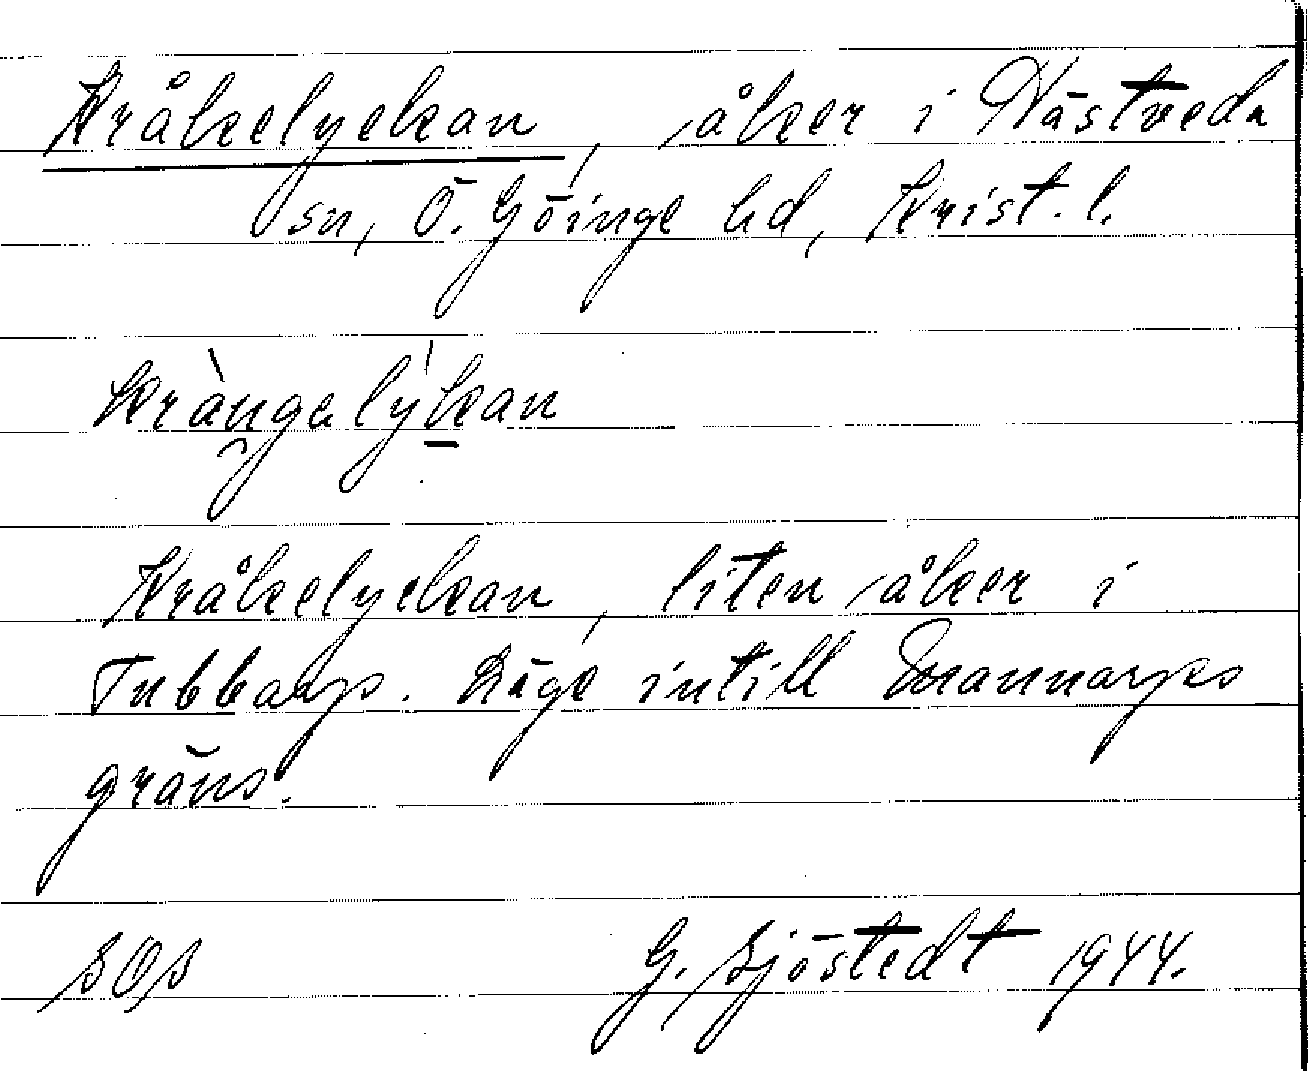 Kråkelyckan, åker i Västveda
sn, Ö. Göinge hd, Krist. l.
krångelykan
Kråkelyckan, liten åker i
Tubbarp. Läge intill Mannarps
gräns.
SOS G. Sjöstedt 1944.